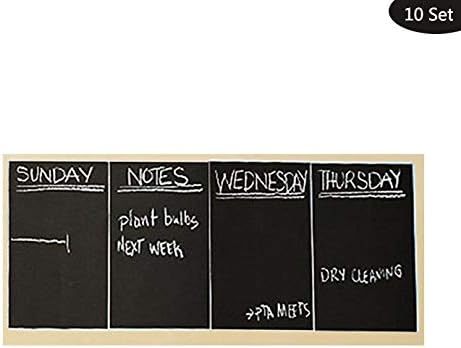 10 Set
SUNDAY
NOTES
plant bulbs
NEXT WEEK
WEDNESDAY
→PTA MEETS
THURSDAY
DRY CLEANING